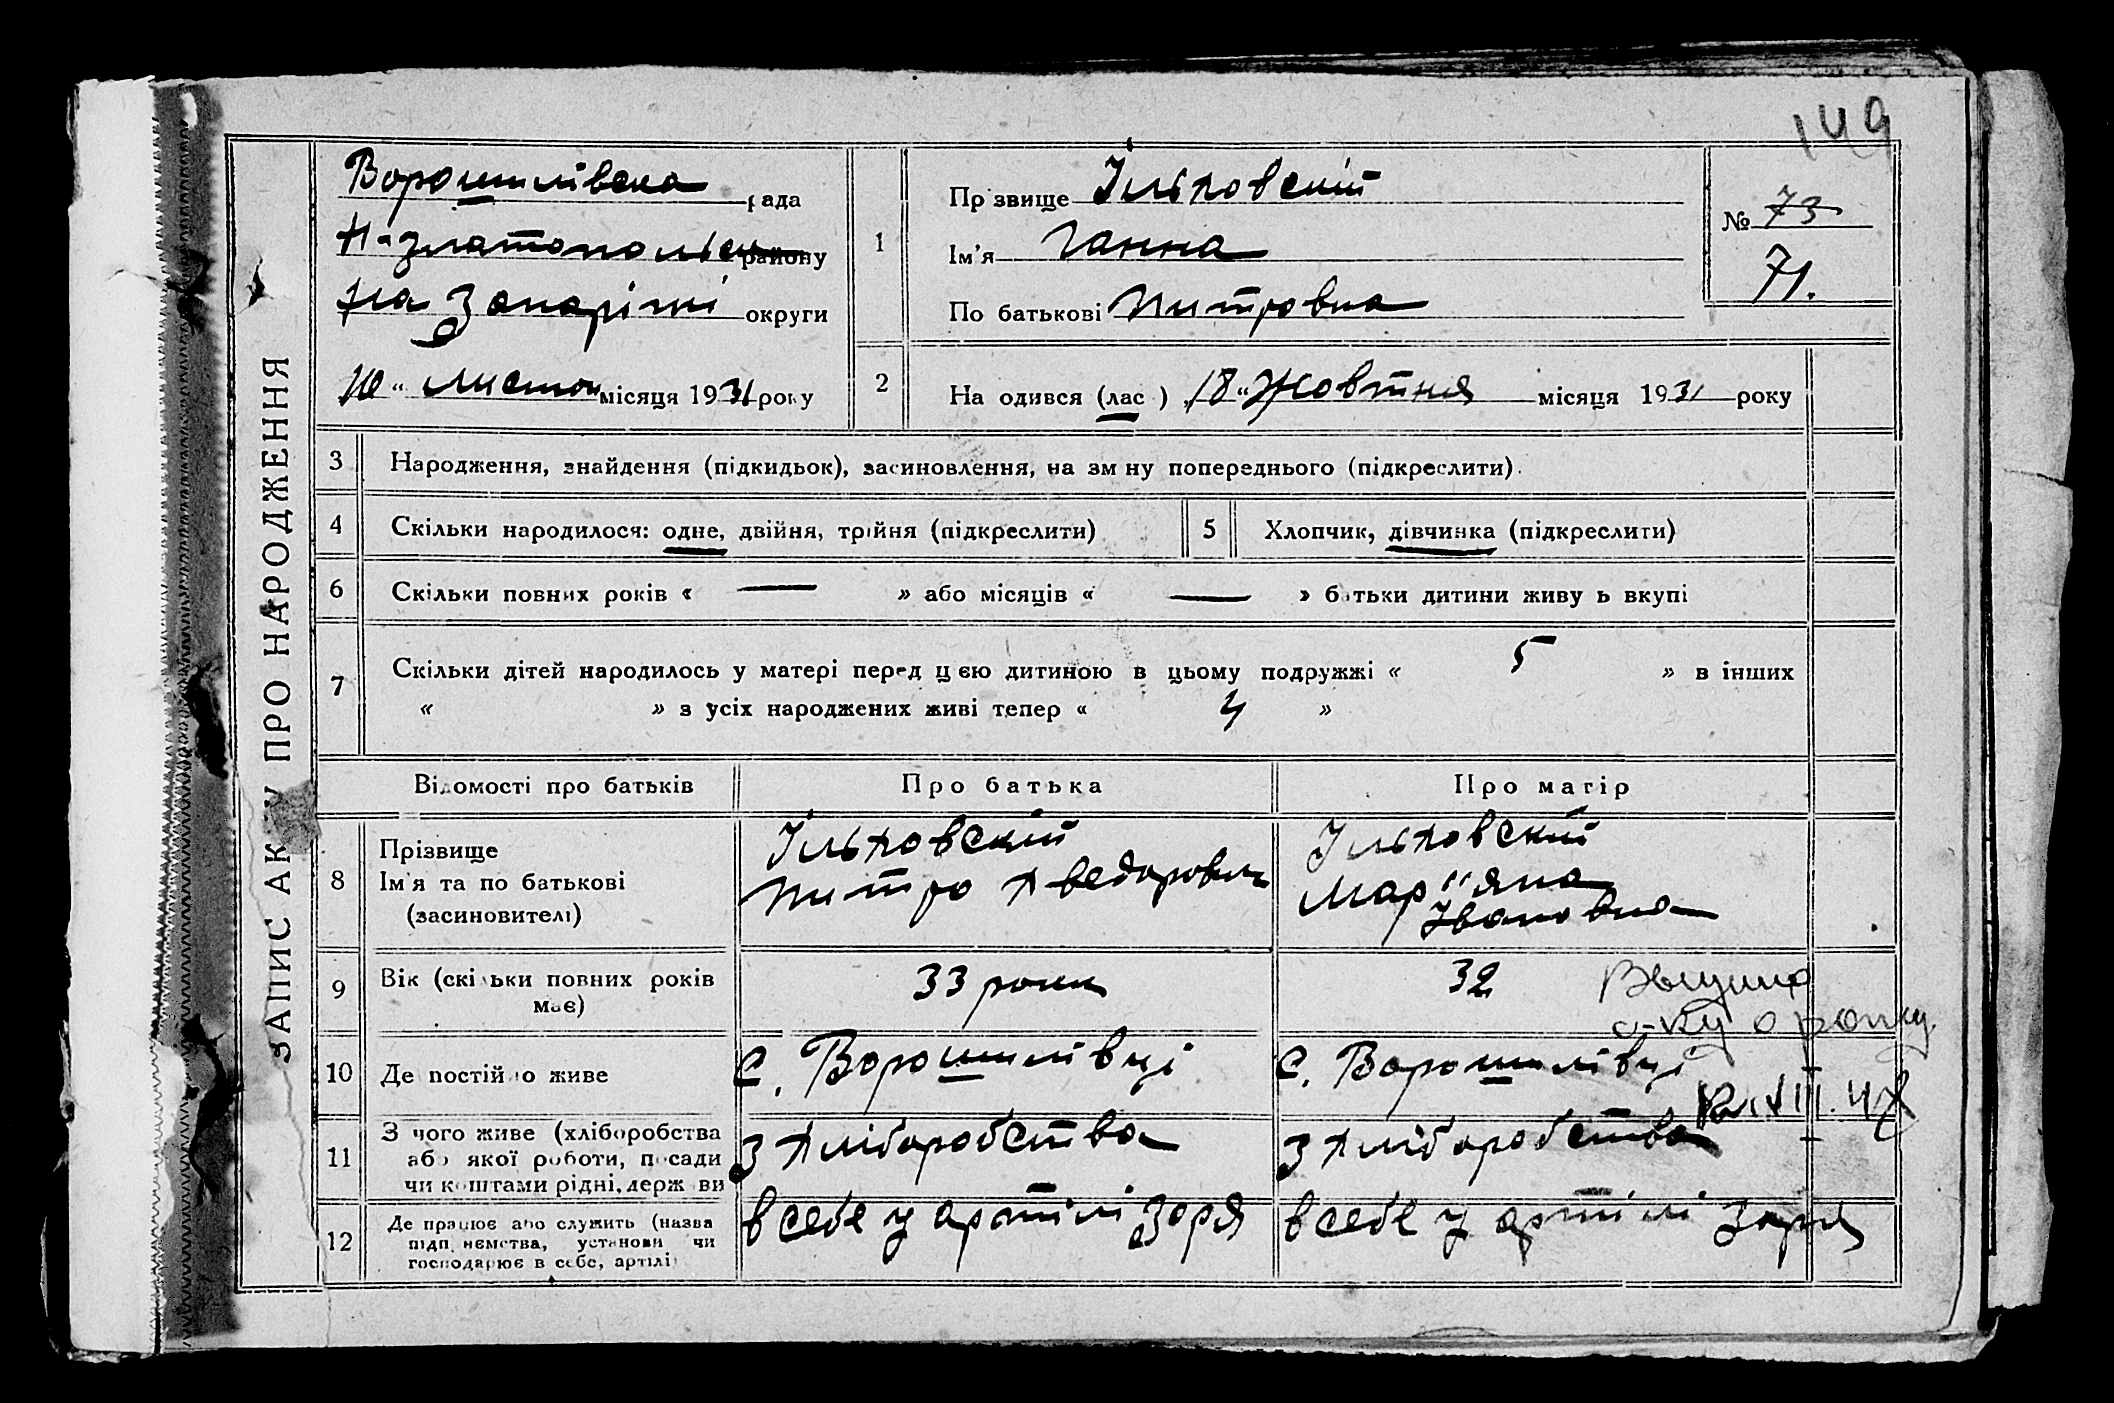 149
ЗАПИС АКТУ ПРО НАРОДЖЕННЯ
Ворошилівска рада
Н-златопольск району
на Запоріжі округи
10 " листоп місяця 1931 року
1
Прізвище Ільковскій
Ім'я Ганна
По батькові Питровна
№ 73
71.
2
На одився (лас ) „18 " Жовтня місяця 1931 року
3 Народження, знайдення (підкидьок), засиновлення, на зм ну попереднього (підкреслити).
4 Скільки народилося: одне, двійня, трійня (підкреслити)
5 Хлопчик, дівчинка (підкреслити)
6 Скільки повних років « — » або місяців « — » батьки дитини живу ь вкупі
7 Скільки дітей народилось у матері перед цією дитиною в цьому подружжі « 5 » в інших
« » з усіх народжених живі тепер « 4 »
Відомості про батьків
Про батька
Про матір
8
Прізвище
Ім'я та по батькові
(засиновителі)
Ільковскій
Питро Хведорович
Ільковскій
Мар"яна
Івановна
9
Вік (скільки повних років
має)
33 роки
32
10 Де постійно живе
с. Ворошилівці
с. Ворошилівці
11
З чого живе (хліборобства
або якої роботи, посади
чи коштами рідні, держ ви
З Хліборобства
З Хліборобства
12
Де працює або служить (назва
підп нємства, установи чи
господарює в себе, артілі)
в себе у артілі Зоря
в себе у артілі Зоря